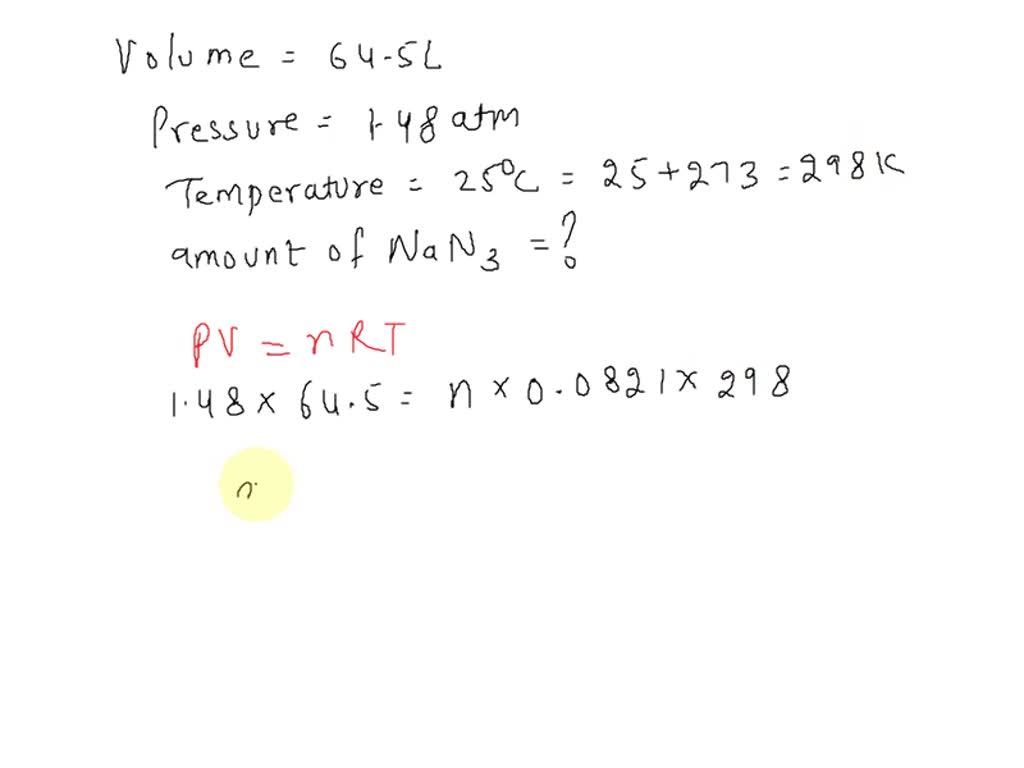 Volume = 64.5L
Pressure = 1.48 atm
Temperature = 25°C = 25 + 273 = 298 K
amount of NaN3 = ?
PV = nRT
1.48 × 64.5 = n × 0.0821 × 298
n